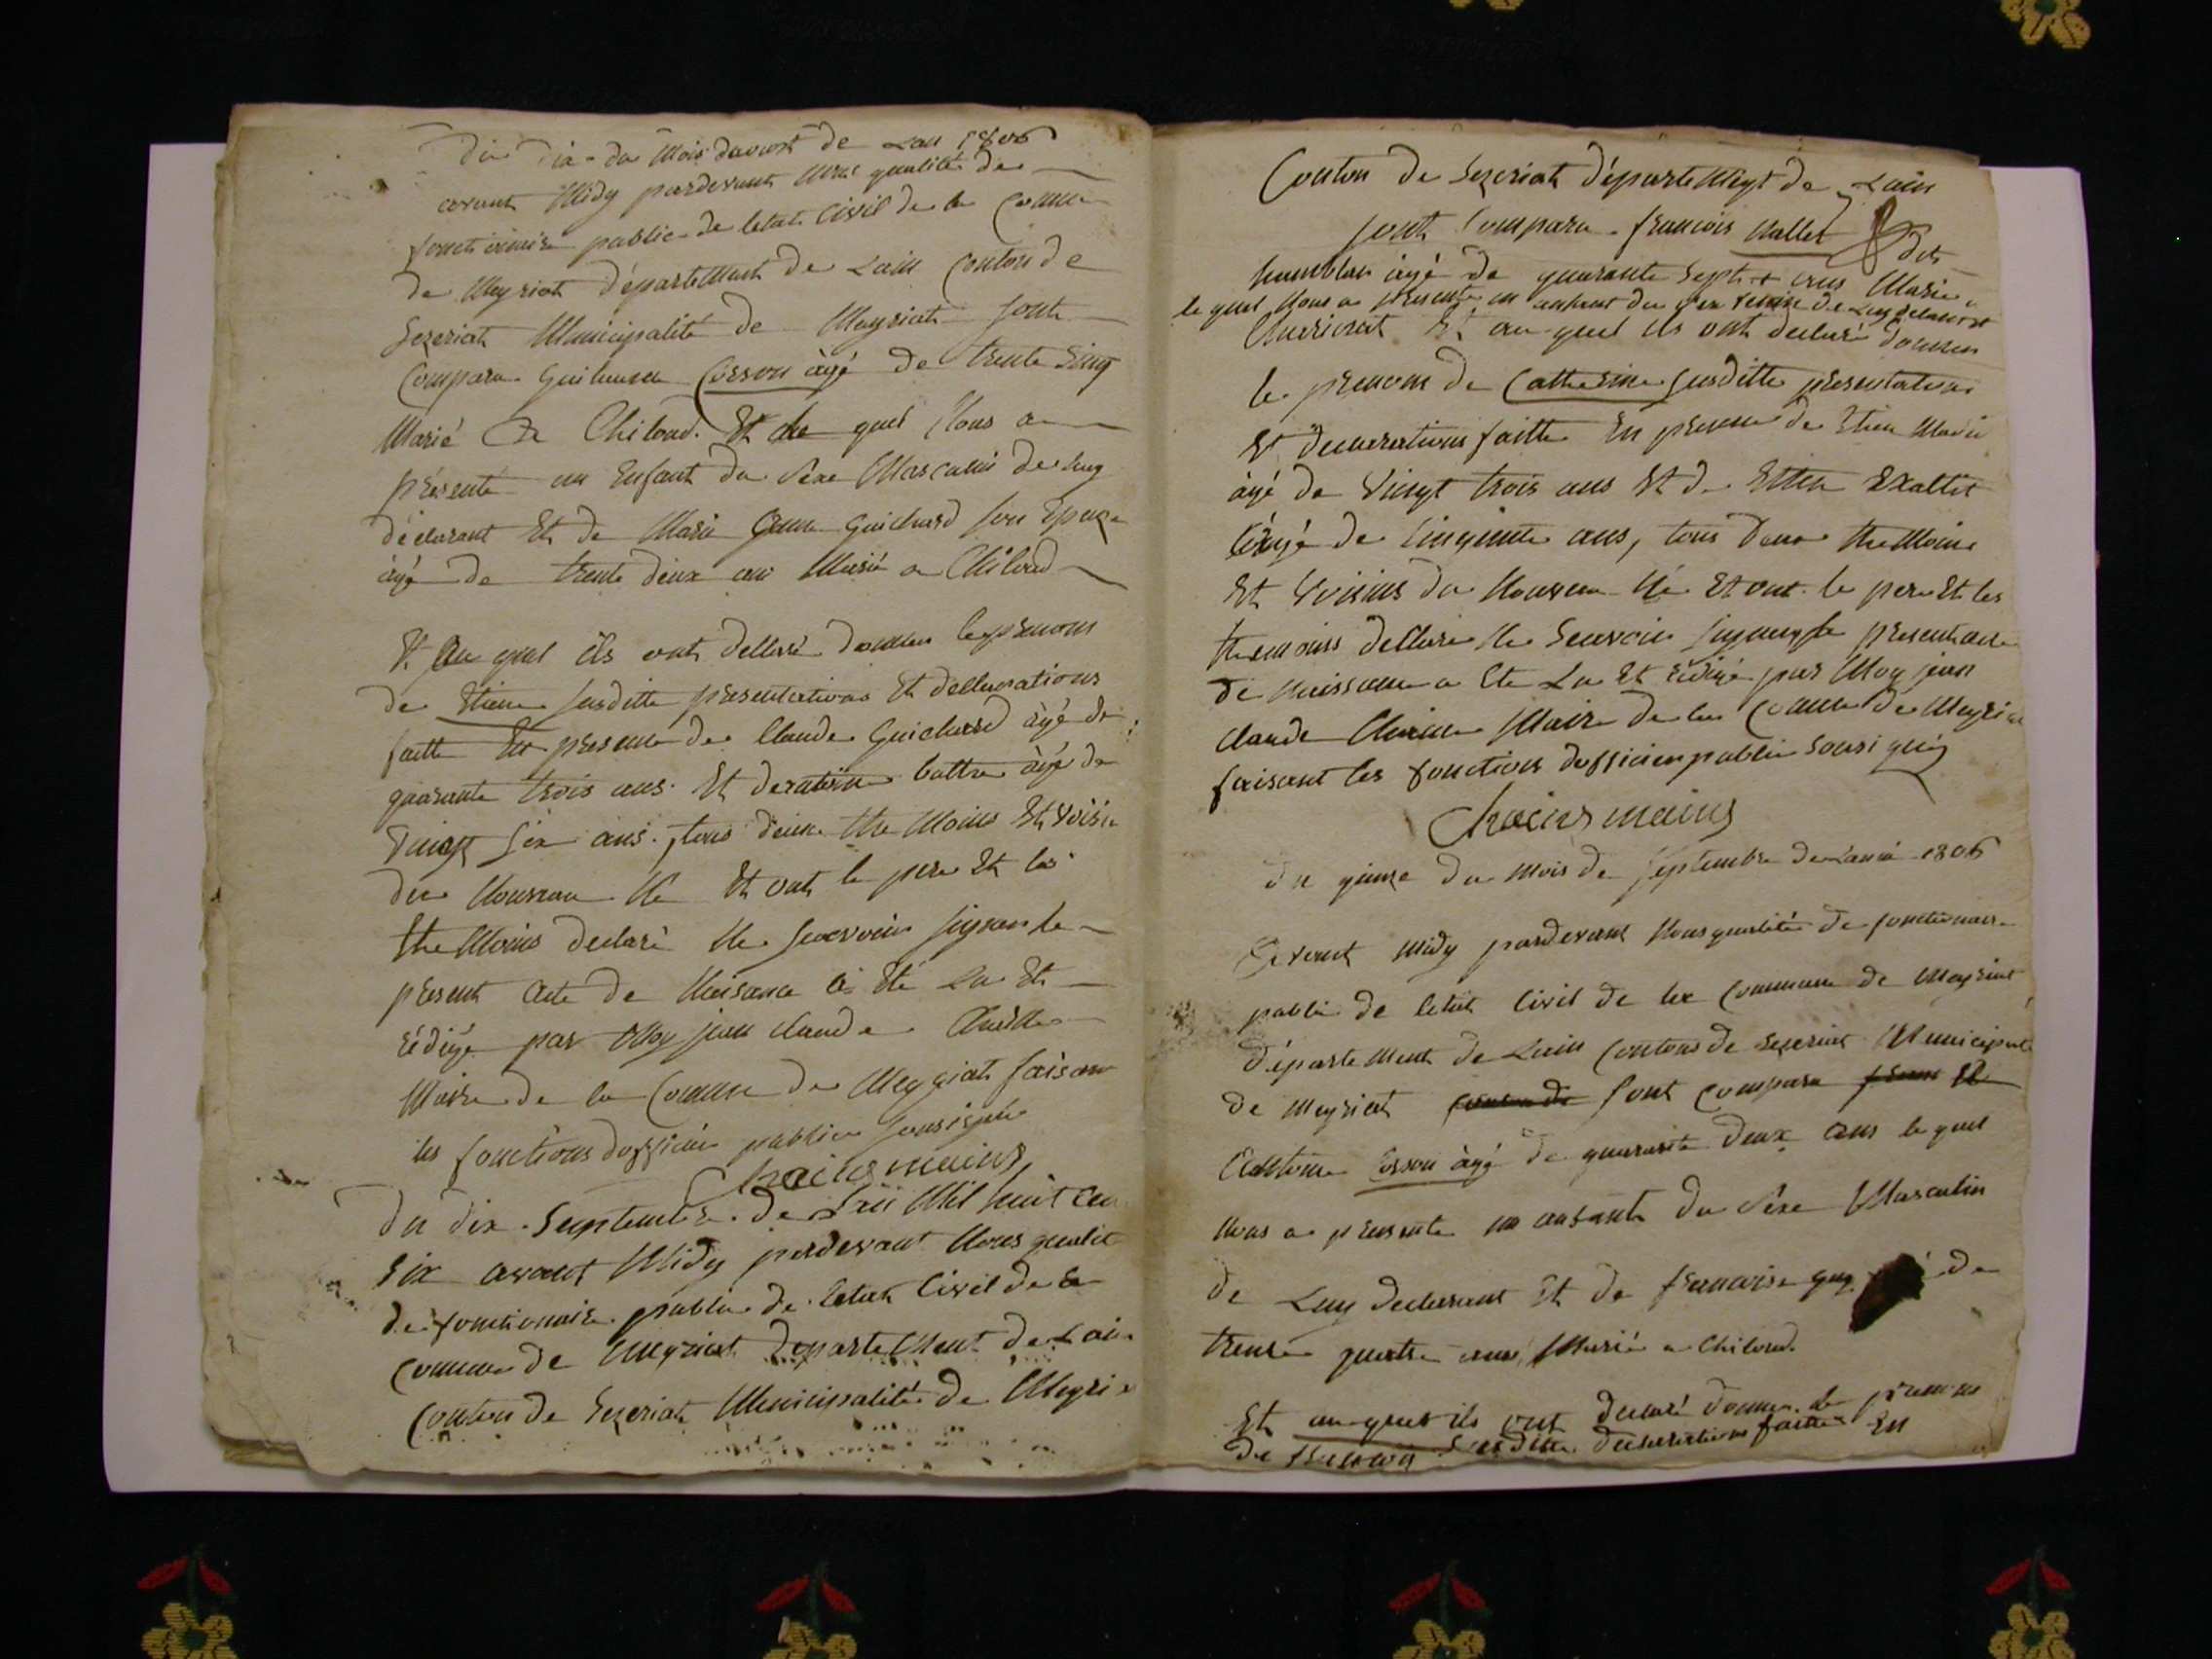 Du dix du Mois daoust de Lan 1806
avant Midy pardevant nous qualité de
fonctionaire public de letat Civil de la Comune
de Meyriat département de Lain Conton de
Sezeriat Municipalité de Meyriat sont
Comparu Guilaume Cosson âgé de trente Sinq
Marié a Chiloud. Et le quel Nous a
présenté un Enfant du Sexe Masculin de luy
déclarant Et de Marie Guichard son Epuze
âgé de trente deux an Marié a Chiloud
Et Au quel ils ont declaré donner le prenom
de Etiene susditte presentations Et declarations
faitte En presence de Claude Guichard âgé de
quarante trois ans. Et de battre âgé de
Vingt six ans. tous deux the Moins Et Voisin
du Nouveau Né Et ont le pere Et les
the Moins declaré Ne seavoir signer le
présent acte de Naisance a Eté Lu Et
rédigé par Moy jean claude
Maire de la Comune de Meyriat faisant
les fonctions dofficier public sousigné
Du dix Septembre de Lan Mil huit cen
six avant Midy pardevant Nous qualité
de fonctionaire public de letat Civil de la
Comune de Meyriat Departe Ment de Lain
Conton de Sezeriat Municipalité de Meyria
Conton de Sezeriat départeMent de Lain
sont Comparu francois Mallet dit
âgé de quarante Sept + ans Marié a
le quel Nous a presenté un anfant du sex femin de Luy declarant
Et au quel ils ont declaré donner
le prenom de Catherine susditte presentations
Et declarations faitte En presence de Etien
âgé de Vingt trois ans Et de Etien
âgé de Cinquante ans, tous deux the Moins
Et Voisins du Nouveau Né Et ont le pere Et les
themoins declaré Ne seavoir signer le present acte
de Naissance a Eté Lu Et rédigé par Moy jean
claude Maire de la Comune de Meyria
faisant les fonctions dofficier public sousigné
Du quinze du Mois de Septembre de Lanné 1806
Avant Midy pardevant Nous qualité de fonctionaire
public de letat Civil de la Commune de Meyriat
départe Ment de Lain Contons de Sezeriat Municipalité
de Meyriat sont comparu
Antoine Cosson âgé de quarante deux ans le quel
Nous a presenté un anfant du Sexe Masculin
de Luy declarant Et de francoise de
trente quattre ans Marié a Chiloud.
Et au quel ils ont declaré donner le prenom
de francois susditte declarations faittes En